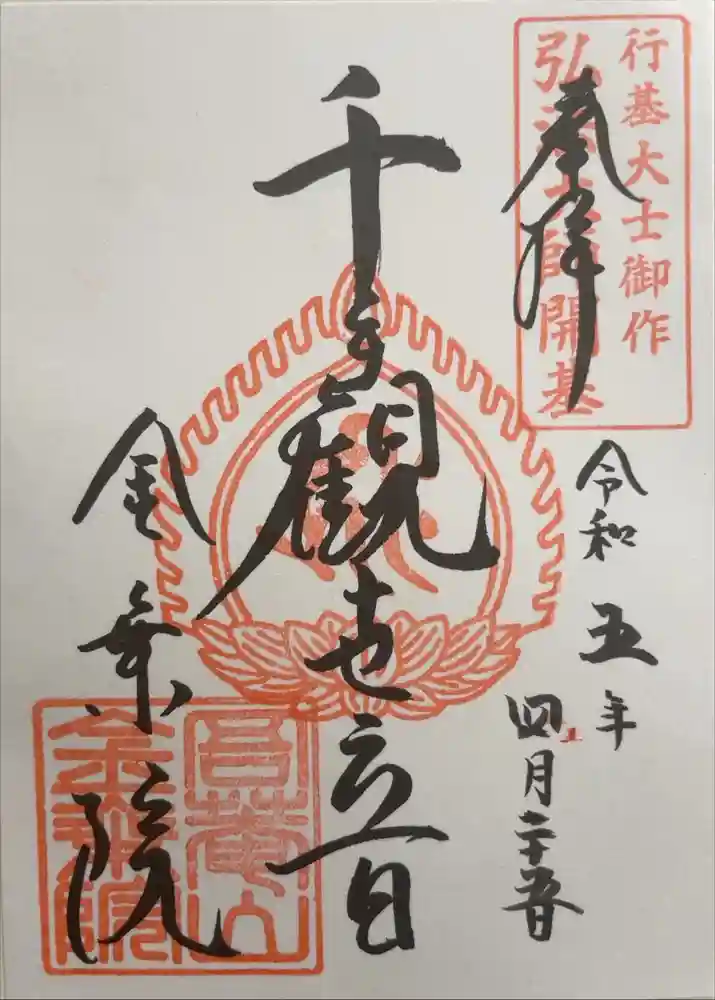 行基大士御作
弘法大師開基
奉拝
令和五年
四月二十五日
千手観世音
金乗院
吾庵山
金乗院